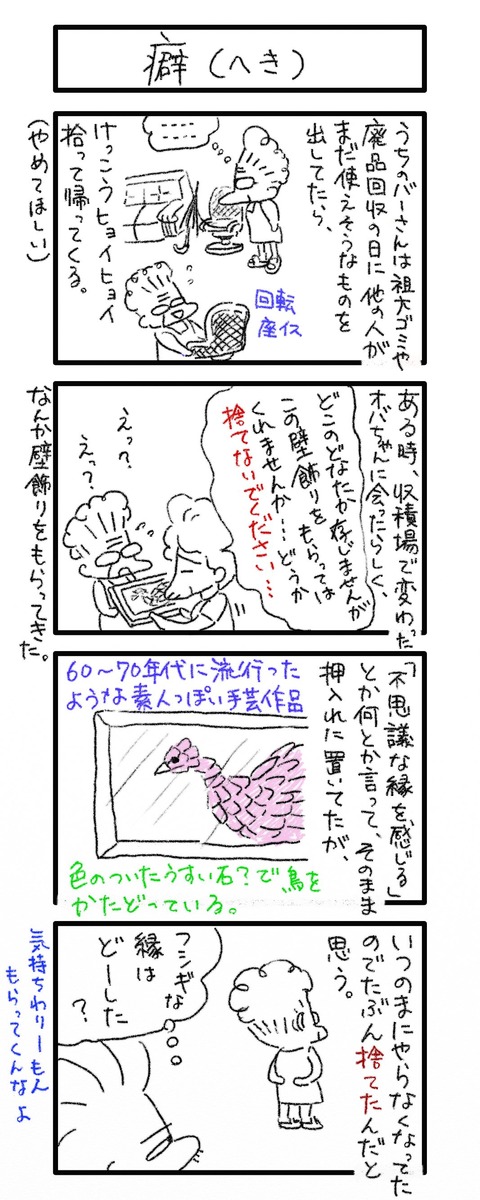 癖（へき）
うちのバーさんは粗大ゴミや
廃品回収の日に他の人が
まだ使えそうなものを
出してたら、
けっこうヒョイヒョイ
拾って帰ってくる。
（やめてほしい）
回転
座イス
ある時、収積場で変わった
オバちゃんに会ったらしく、
どこのどなたか存じませんが
この壁飾りをもらっては
くれませんか…どうか
捨てないでください…
えっ？
えっ？
なんか壁飾りをもらってきた。
「不思議な縁を感じる」
とか何とか言って、そのまま
押入れに置いてたが、
60〜70年代に流行った
ような素人っぽい手芸作品
色のついたうすい石？で鳥を
かたどっている。
いつのまにやらなくなってた
のでたぶん捨てたんだと
思う。
フシギな
縁は
どーした
？
気持ちわりーもん
もらってくんなよ